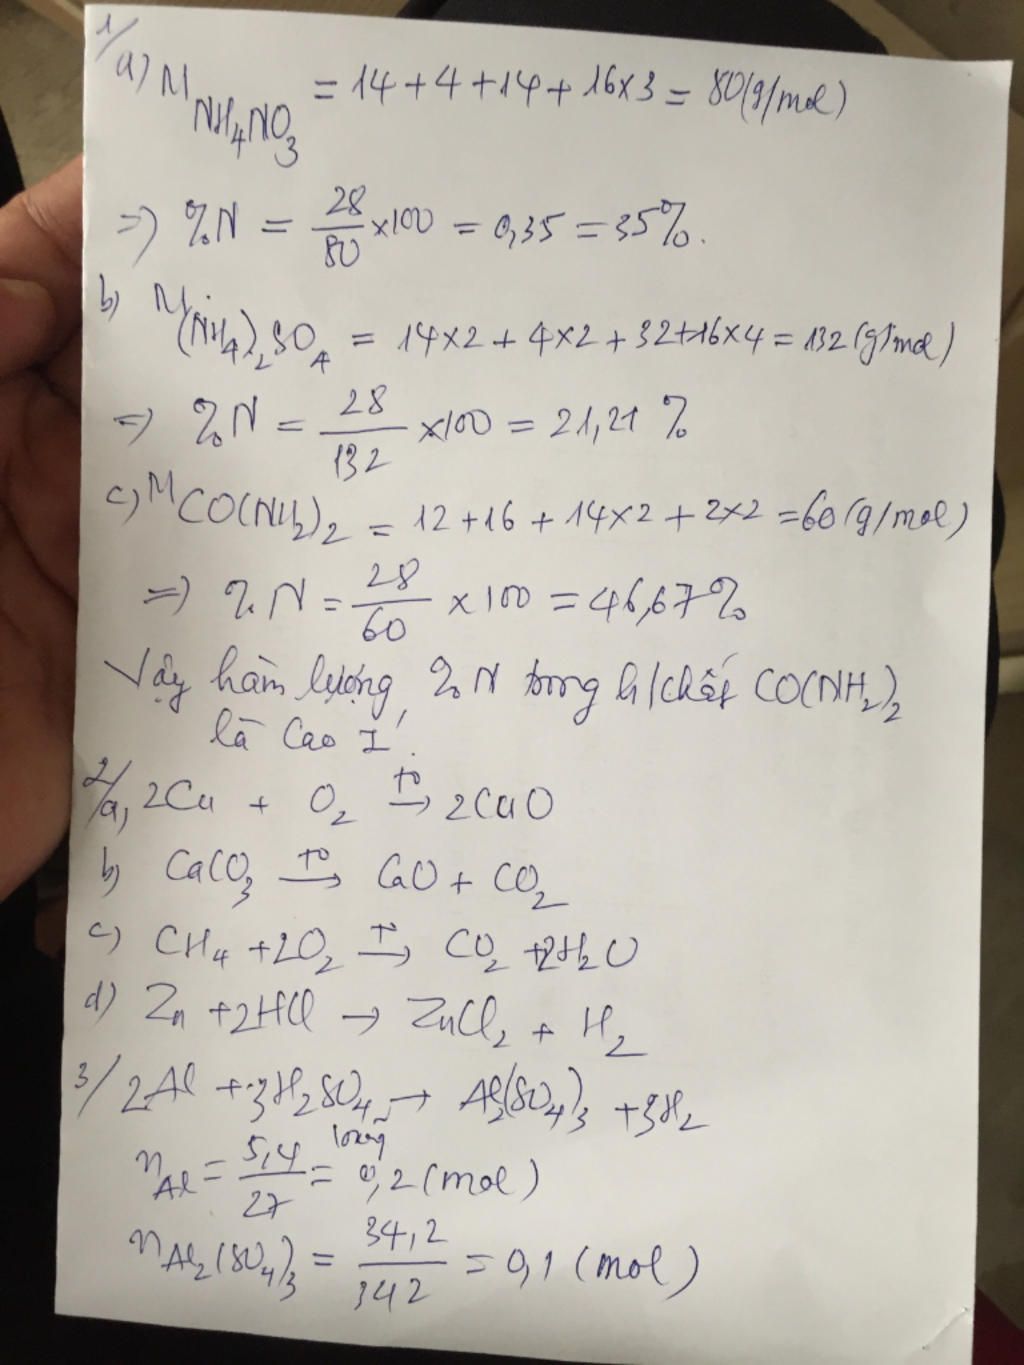 1/
a) M NH₄NO₃ = 14 + 4 + 14 + 16x3 = 80(g/mol)
=> %N = 28/80 x100 = 0,35 = 35%.
b) M (NH₄)₂SO₄ = 14x2 + 4x2 + 32+16x4 = 132 (g/mol)
=> %N = 28/132 x100 = 21,21 %
c) M CO(NH₂)₂ = 12 +16 + 14x2 + 2x2 = 60 (g/mol)
=> %N = 28/60 x 100 = 46,67%
Vậy hàm lượng %N trong h/chất CO(NH₂)₂
là cao I'.
2/a, 2Cu + O₂ t° → 2CuO
b) CaCO₃ t° → CaO + CO₂
c) CH₄ +2O₂ t° → CO₂ +2H₂O
d) Zn +2HCl → ZnCl₂ + H₂
3/ 2Al + 3H₂SO₄ loãng → Al₂(SO₄)₃ +3H₂
n Al = 5,4/27 = 0,2 (mol)
n Al₂(SO₄)₃ = 34,2/342 = 0,1 (mol)